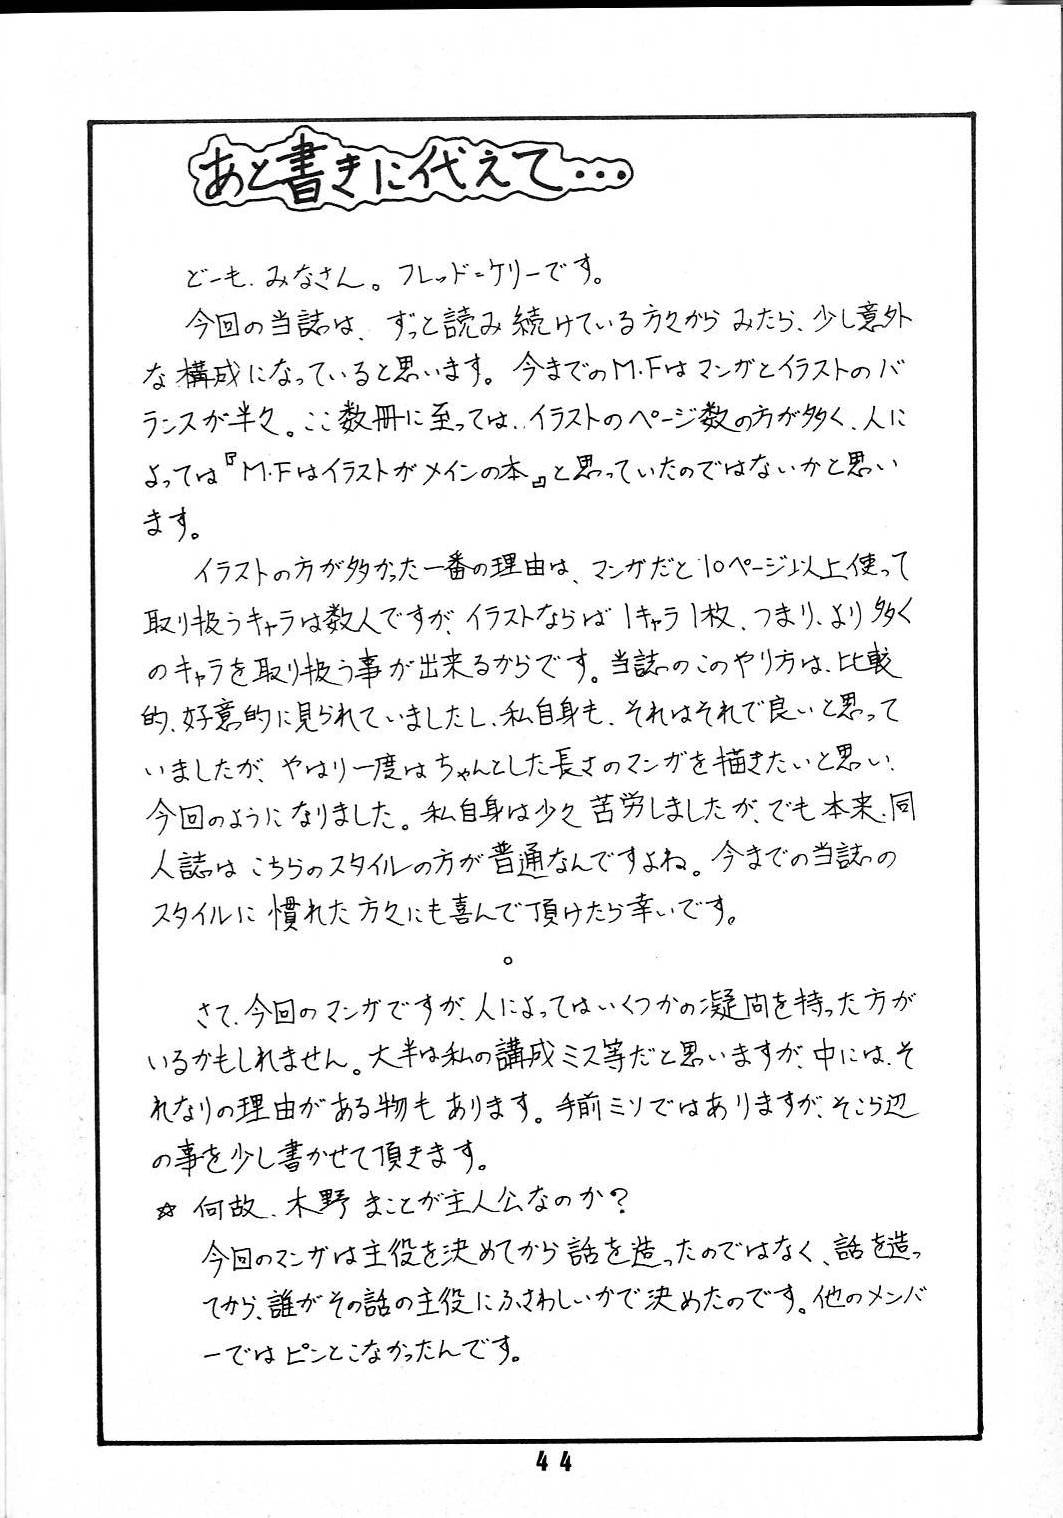 あと書きに代えて・・・
どーも、みなさん。フレッド=ケリーです。
今回の当誌は、ずっと読み続けている方々からみたら、少し意外
な構成になっていると思います。今までのM.Fはマンガとイラストのバ
ランスが半々。ここ数冊に至っては、イラストのページ数の方が多く、人に
よっては『M.Fはイラストがメインの本』と思っていたのではないかと思い
ます。
イラストの方が多かった一番の理由は、マンガだと10ページ以上使って
取り扱うキャラは数人ですが、イラストならば1キャラ1枚、つまり、より多く
のキャラを取り扱う事が出来るからです。当誌のこのやり方は、比較
的、好意的に見られていましたし、私自身も、それはそれで良いと思って
いましたが、やはり一度はちゃんとした長さのマンガを描きたいと思い、
今回のようになりました。私自身は少々苦労しましたが、でも本来、同
人誌はこちらのスタイルの方が普通なんですよね。今までの当誌の
スタイルに慣れた方々にも喜んで頂けたら幸いです。
○
さて、今回のマンガですが、人によってはいくつかの凝問を持った方が
いるかもしれません。大半は私の講成ミス等だと思いますが、中には、そ
れなりの理由がある物もあります。手前ミソではありますが、そこら辺
の事を少し書かせて頂きます。
☆何故、木野まことが主人公なのか?
今回のマンガは主役を決めてから話を造ったのではなく、話を造っ
てから、誰がその話の主役にふさわしいかで決めたのです。他のメンバ
ーではピンとこなかったんです。
44